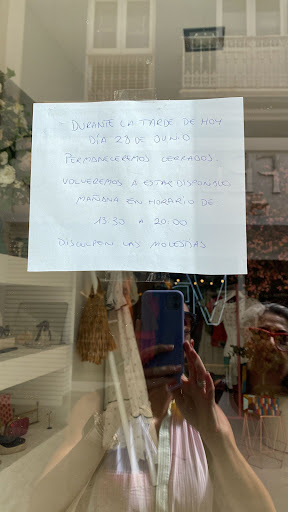 DURANTE LA TARDE DE HOY
DÍA 28 DE JUNIO
PERMANECEREMOS CERRADOS.
VOLVEREMOS A ESTAR DISPONIBLES
MAÑANA EN HORARIO DE
13:30 A 20:00
DISCULPEN LAS MOLESTIAS